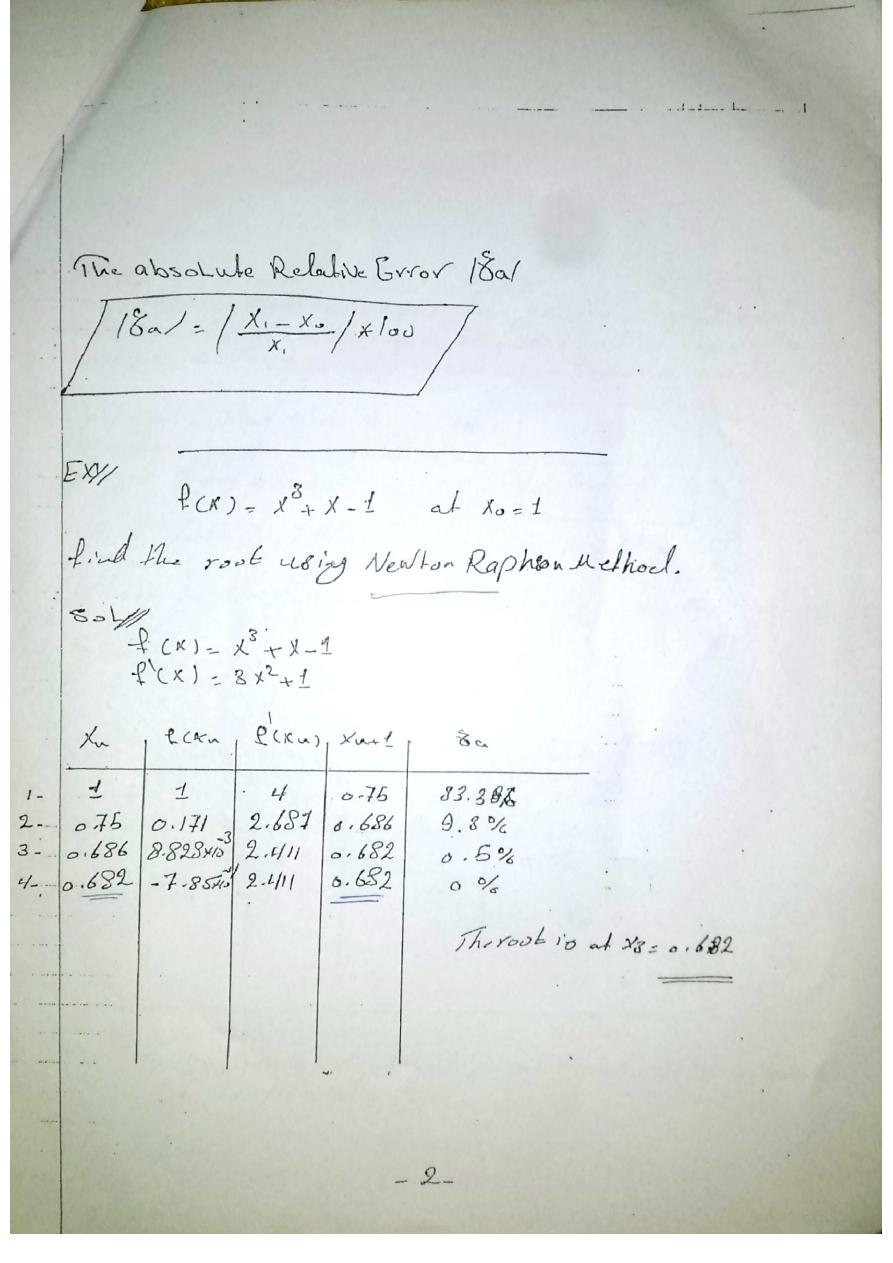 The absolute Relative Error |εa|
|εa| = |X₁ - X₀ / X₁| * 100
EX//
f(x) = x³ + x - 1 at x₀ = 1
find the root using Newton Raphson Method.
Sol//
f(x) = x³ + x - 1
f'(x) = 3x² + 1
Xn f(xn f'(xn) Xn+1 εa
1- 1 1 4 0.75 33.3%
2- 0.75 0.171 2.687 0.686 9.3%
3- 0.686 8.828*10⁻³ 2.411 0.682 0.5%
4- 0.682 2.411 0.682 0%
The root is at x₃ = 0.682
- 2 -